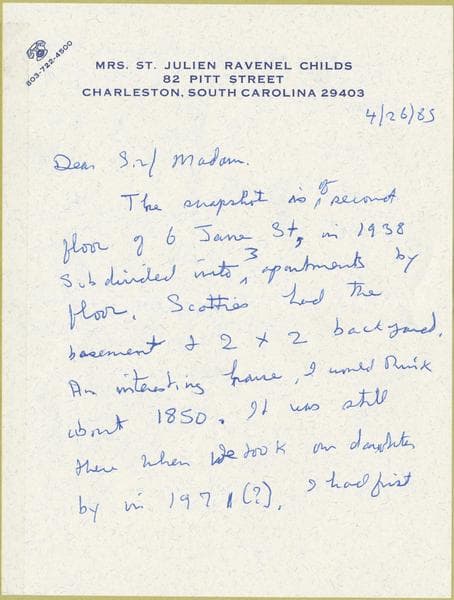 803-722-4500
MRS. ST. JULIEN RAVENEL CHILDS
82 PITT STREET
CHARLESTON, SOUTH CAROLINA 29403
4/26/85
Dear Sir/ Madam.
The snapshot is of second
floor of 6 Jane St, in 1938
Subdivided into 3 apartments by
floor. Scotties had the
basement & 2 x 2 backyard.
An interesting house, I would think
about 1850. It was still
there when we took our daughter
by in 1971 (?). I had first